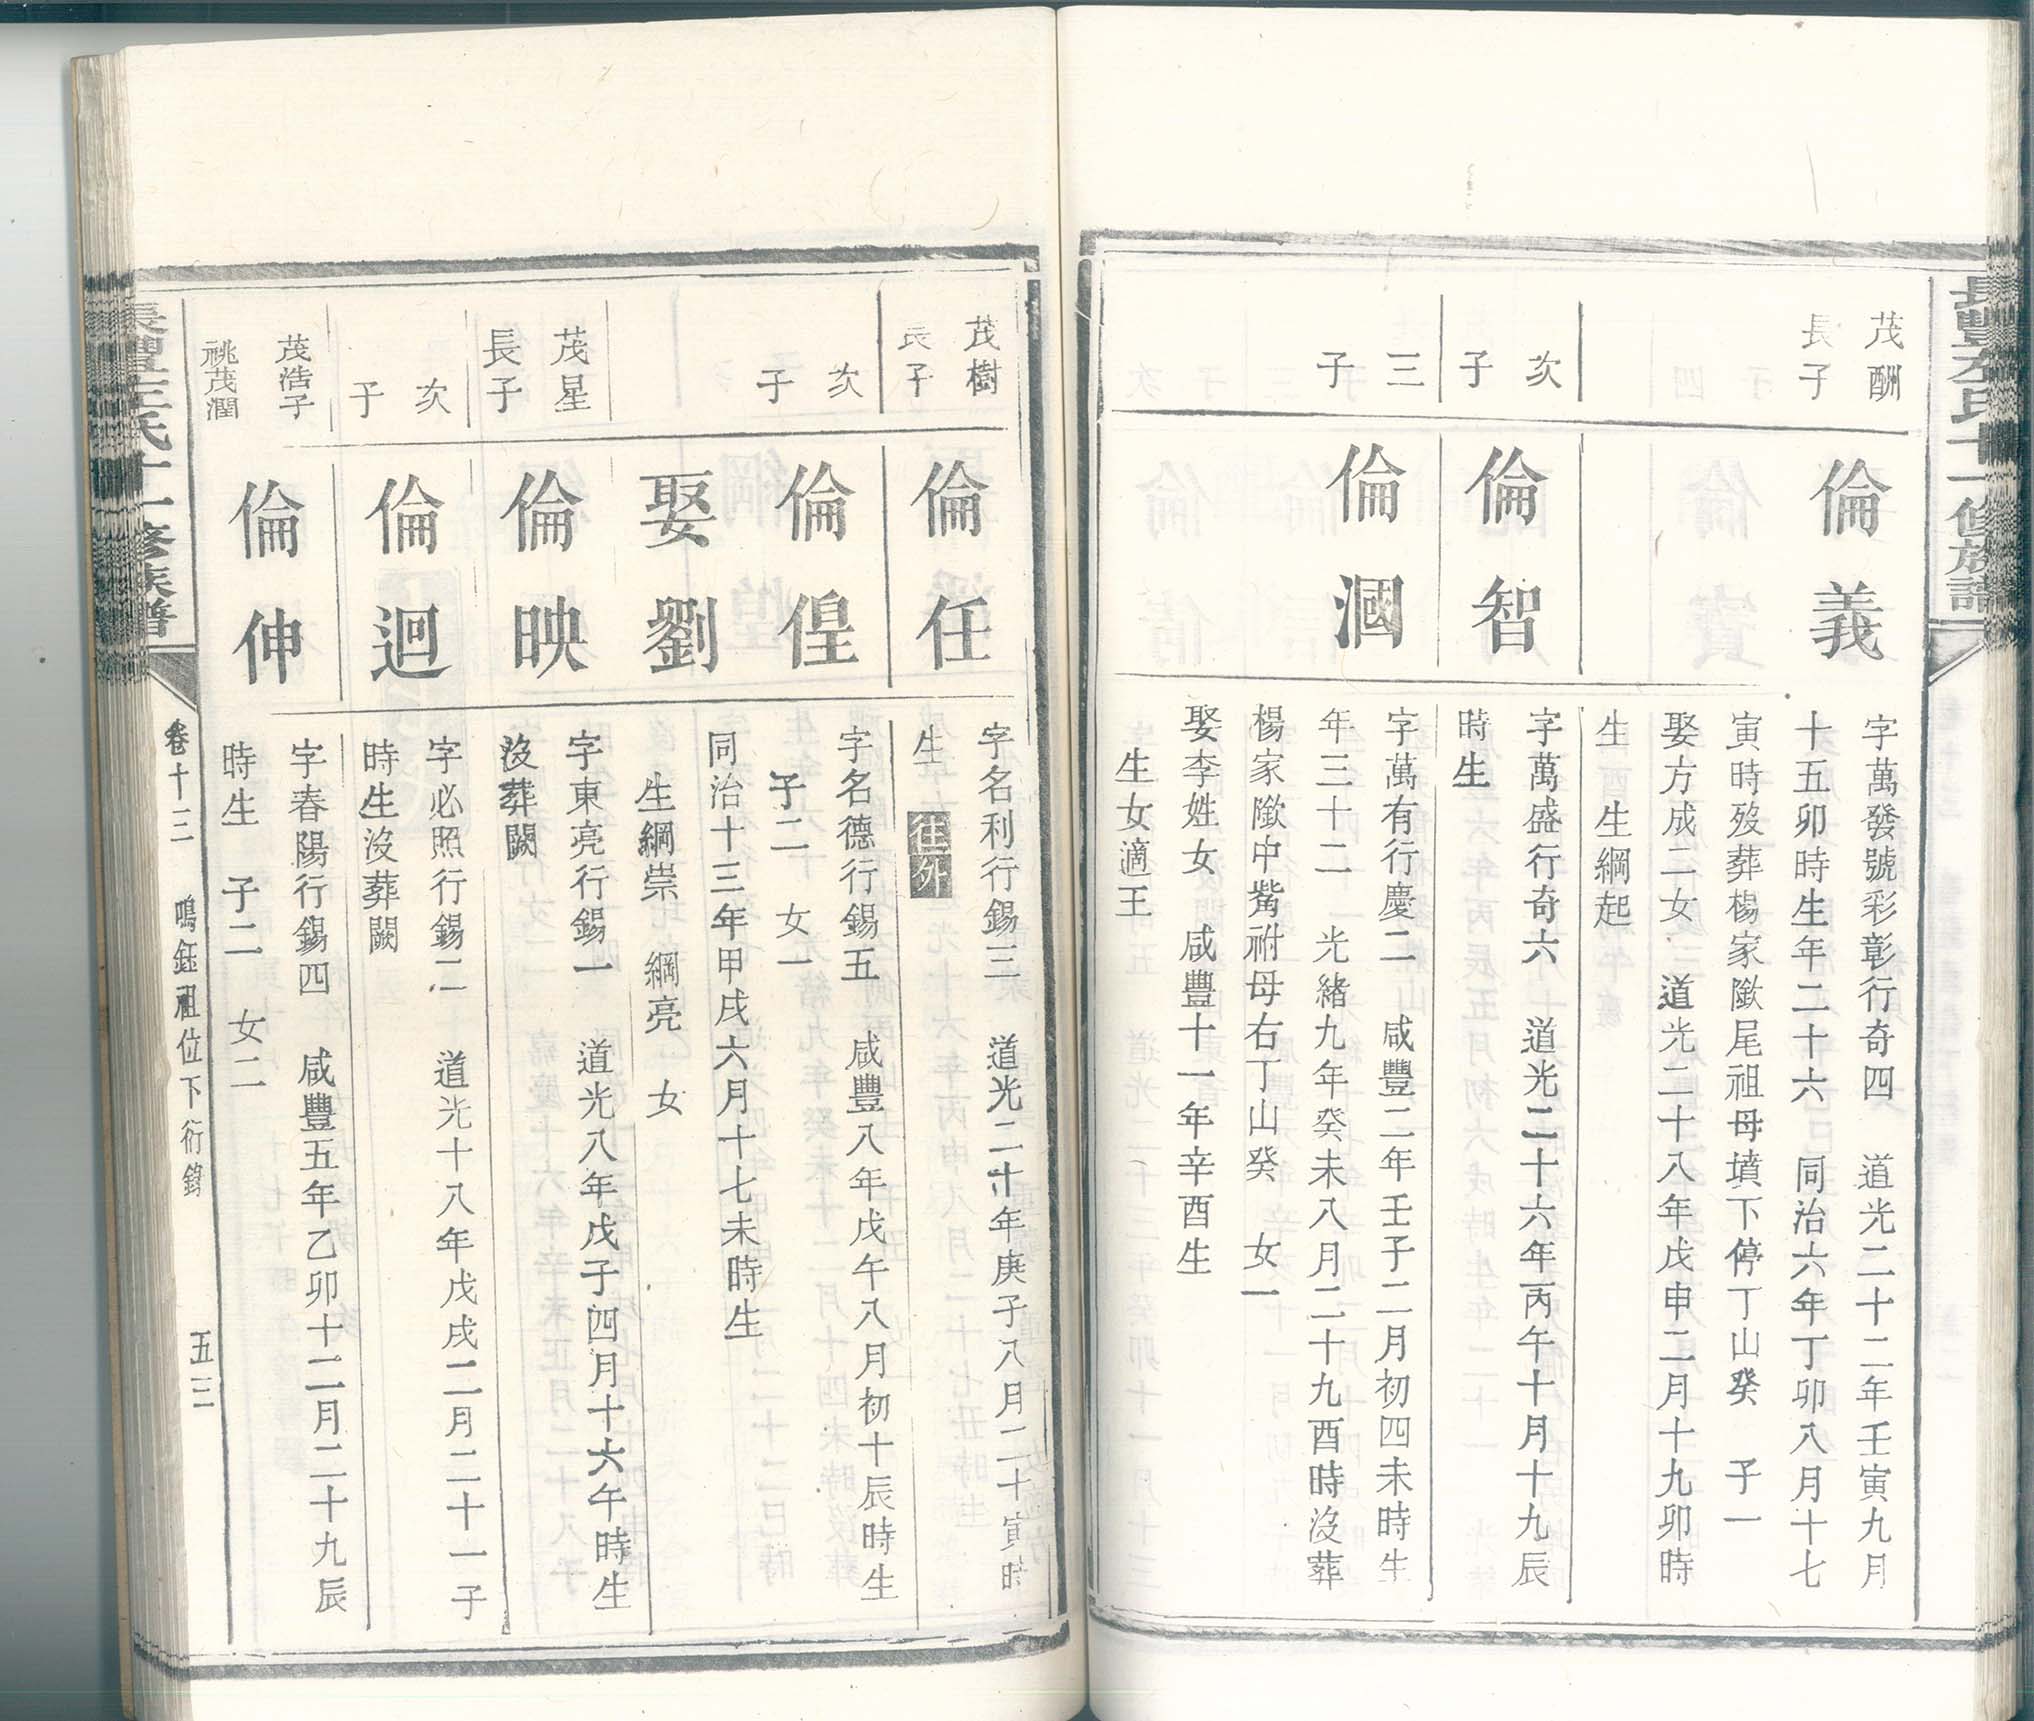 長豐左氏十一修族譜
茂酬
長子
倫義
字萬發號彩彰行奇四　道光二十二年壬寅九月
十五卯時生年二十六　同治六年丁卯八月十七
寅時歿葬楊家隞尾祖母墳下停丁山癸　子一
娶方成二女　道光二十八年戊申二月十九卯時
生　生綱起
次
子
倫智
字萬盛行奇六　道光二十六年丙午十月十九辰
時生
三
子
倫漍
字萬有行慶二　咸豐二年壬子二月初四未時生
年三十二　光緒九年癸未八月二十九酉時沒葬
楊家隞中觜祔母右丁山癸　女一
娶李姓女　咸豐十一年辛酉生
生女適王
茂樹
長子
倫任
字名利行錫三　道光二十年庚子八月二十寅時
生　往外
次
子
倫偟
字名德行錫五　咸豐八年戊午八月初十辰時生
子二　女一
娶劉
同治十三年甲戌六月十七未時生
生綱崇　綱亮　女
茂星
長子
倫映
字東亮行錫一　道光八年戊子四月十六午時生
沒葬闕
次
子
倫迴
字必照行錫二　道光十八年戊戌二月二十一子
時生沒葬闕
茂浩子
祧茂潤
倫伸
字春陽行錫四　咸豐五年乙卯十二月二十九辰
時生　子二　女二
長豐左氏十一修族譜
卷十三　鳴鈺祖位下衍錦　五三